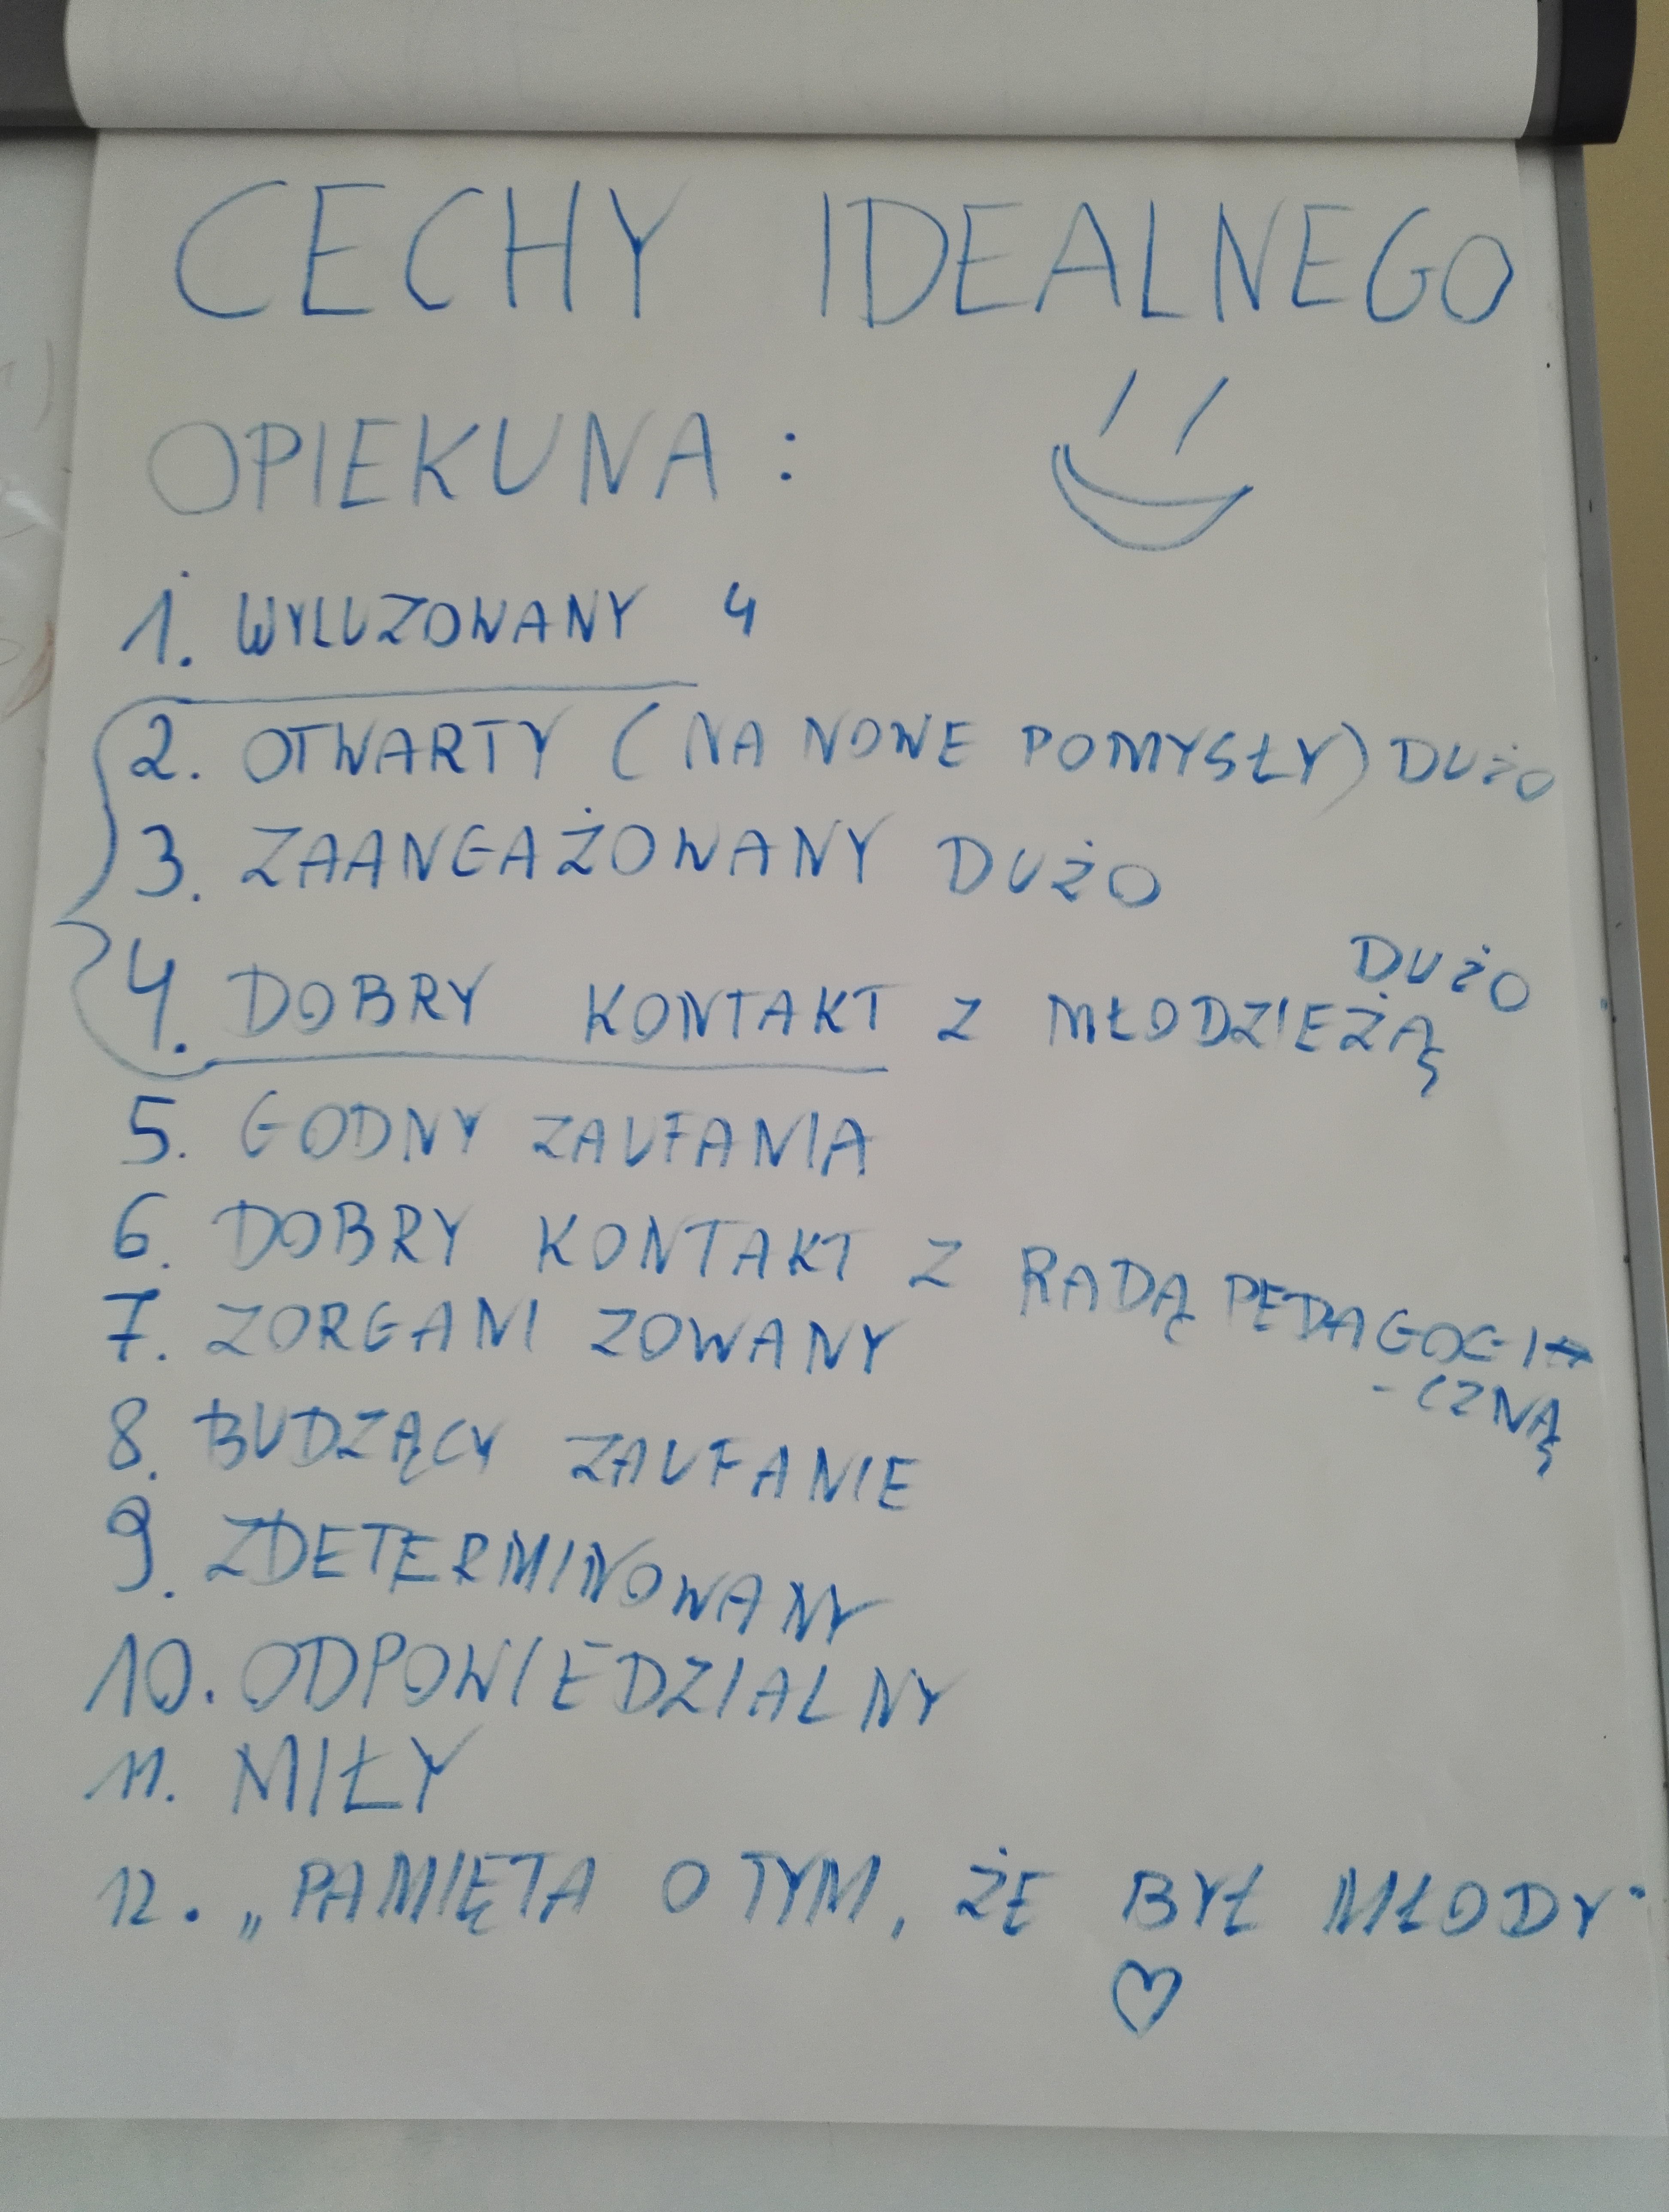 CECHY IDEALNEGO
OPIEKUNA:
1. WYLUZOWANY 4
2. OTWARTY (NA NOWE POMYSŁY) DUŻO
3. ZAANGAŻOWANY DUŻO
4. DOBRY KONTAKT Z MŁODZIEŻĄ DUŻO
5. GODNY ZAUFANIA
6. DOBRY KONTAKT Z RADĄ PEDAGOGI
-CZNĄ
7. ZORGANIZOWANY
8. BUDZĄCY ZAUFANIE
9. ZDETERMINOWANY
10. ODPOWIEDZIALNY
11. MIŁY
12. „PAMIĘTA O TYM, ŻE BYŁ MŁODY"